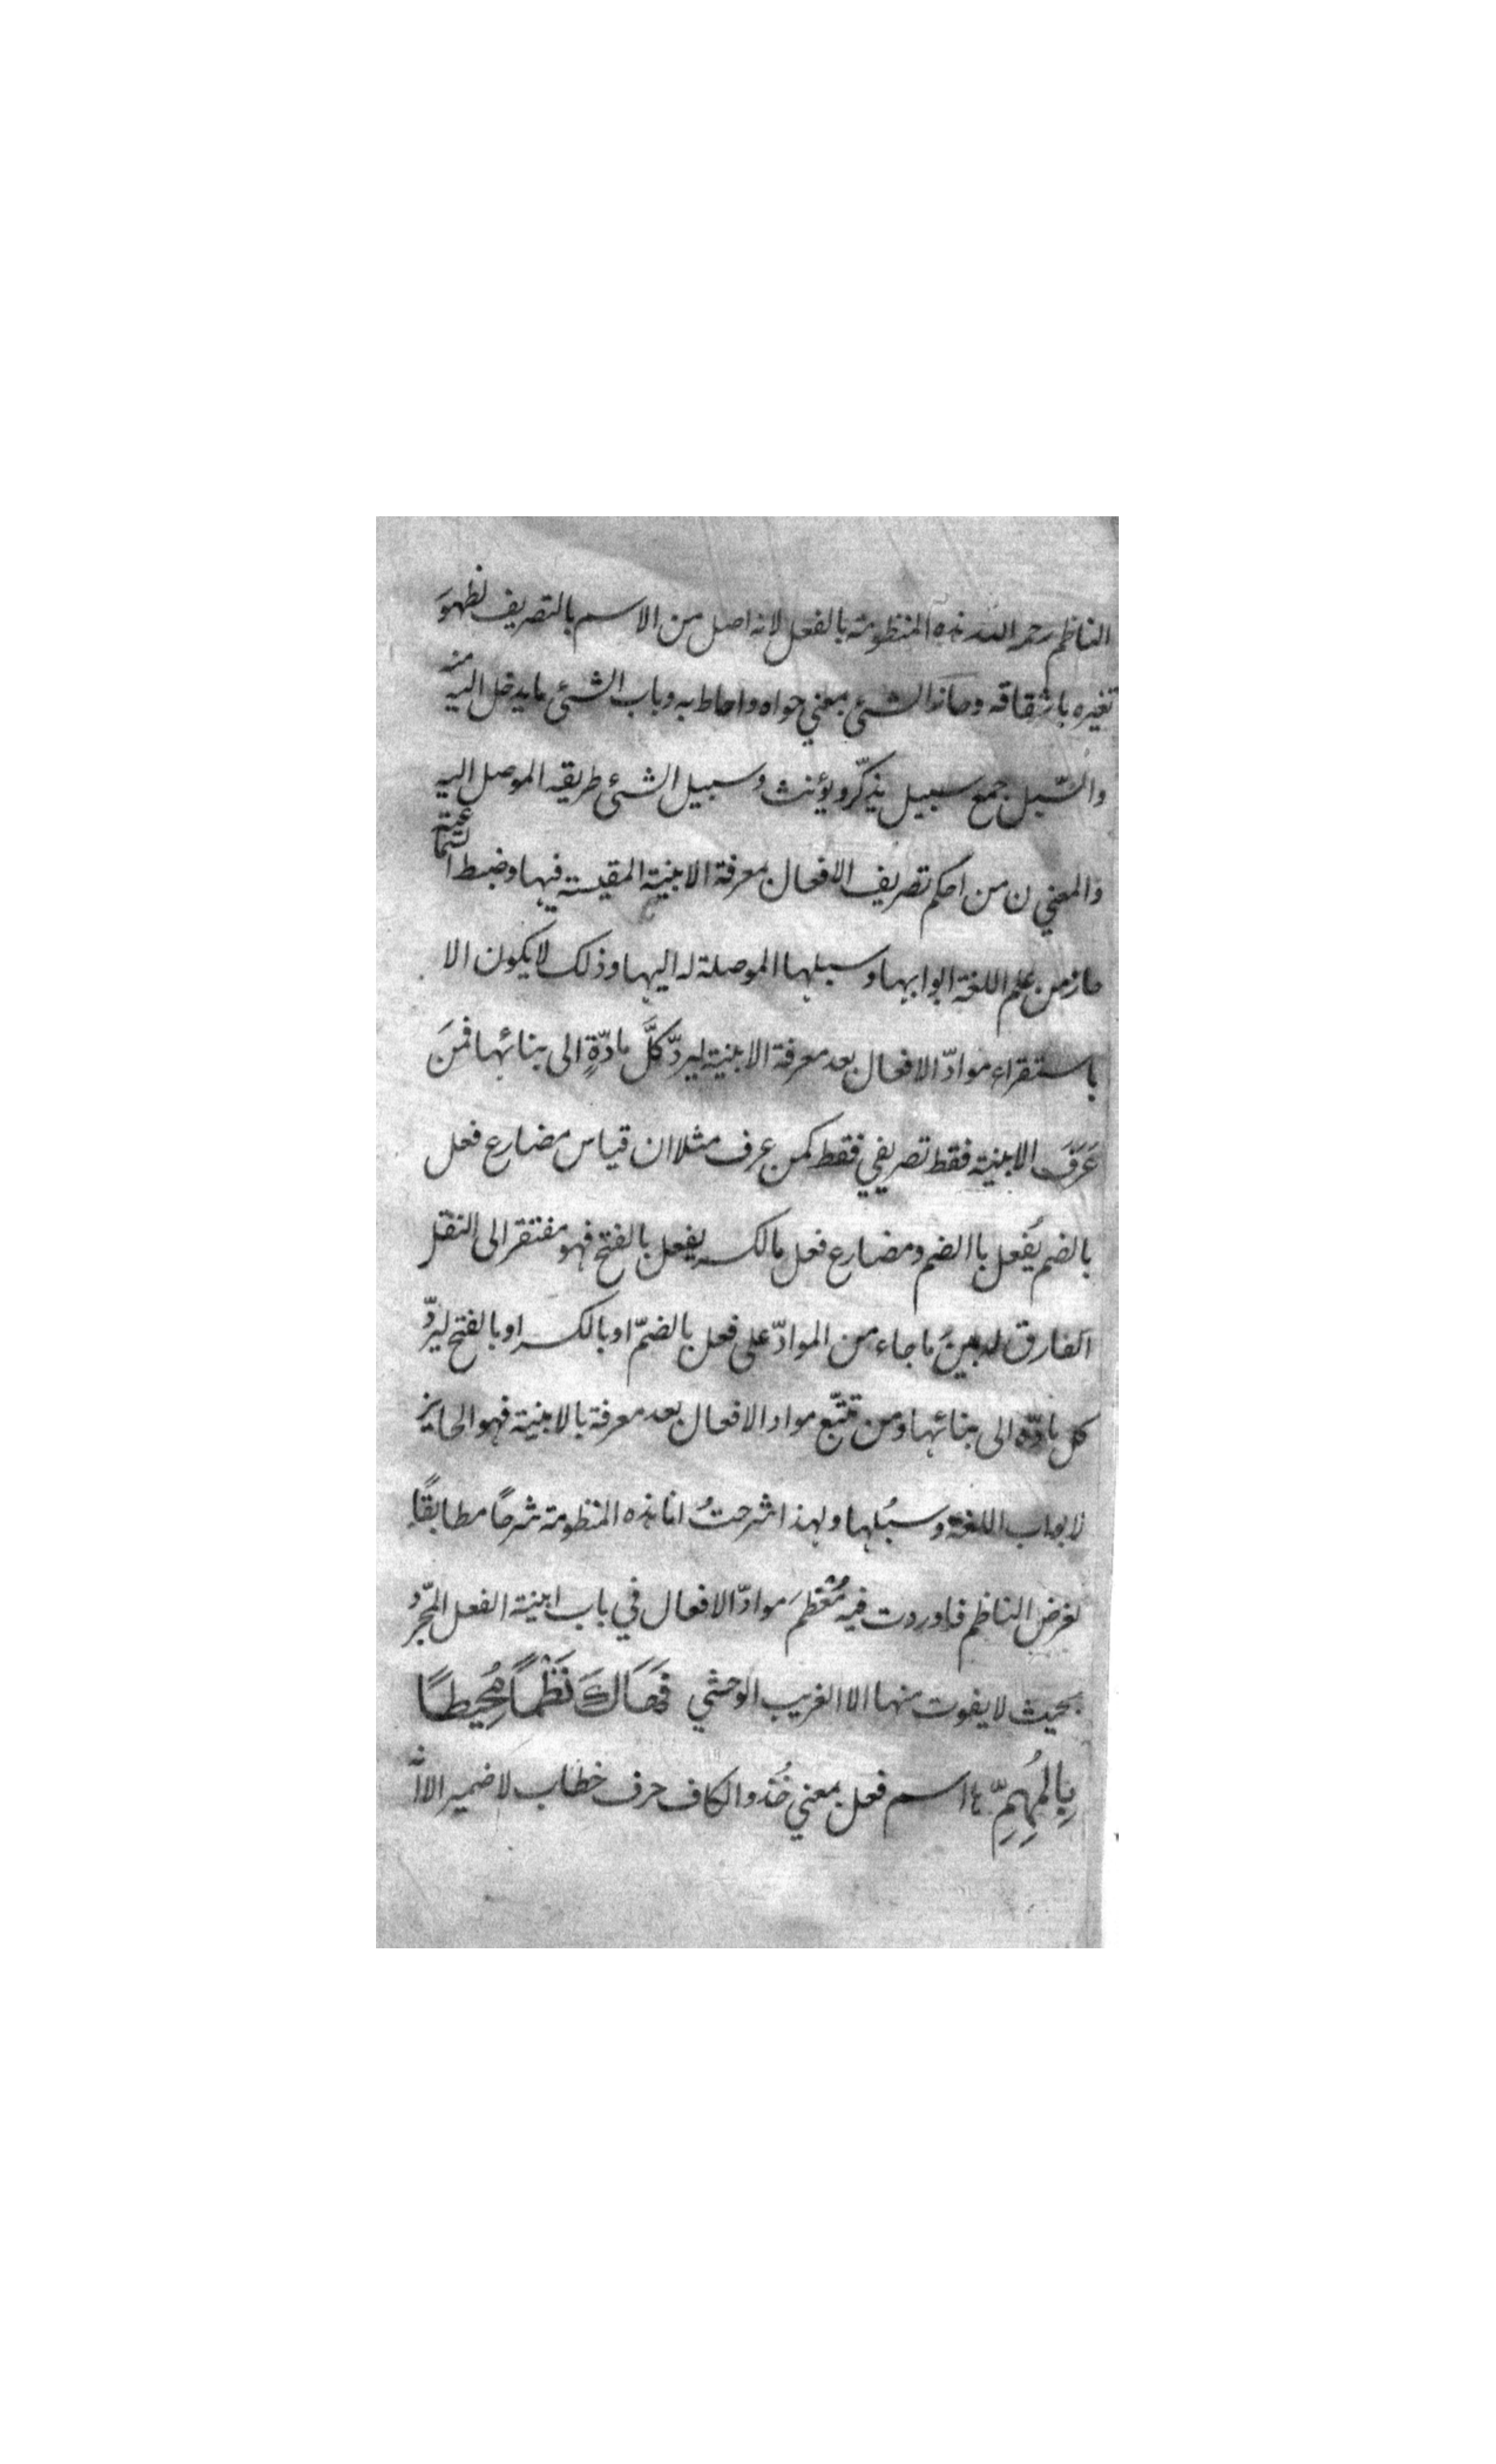 الناظم رحمه الله هذه المنظومة بالفعل لانه اصل من الاسم بالتصريف لظهور
تغيره باشتقاقه وحاز الشئ بمعني حواه واحاط به وباب الشئ ما يدخل اليه منه
والسّبل جمع سبيل يذكّر ويؤنث وسبيل الشئ طريقه الموصل اليه
والمعني ن من احكم تصريف الافعال بمعرفة الابنية المقيسة فيها وضبط
حاز من علم اللغة ابوابها وسبلها الموصلة له اليها وذلك لا يكون الا
باستقراء موادّ الافعال بعد معرفة الابنية ليردّ كلَّ مادّةٍ الى بنائها فمَن
عَرَفَ الابنية فقط تصريفي فقط كمن عرف مثلا ان قياس مضارع فعل
بالضم يَفُعل باالضم ومضارع فعل بالكسر يفعل بالفتح فهو مفتقر الى النقل
الفارق له بينَ ما جاء من الموادّ على فعل بالضمّ او بالكسر او بالفتح ليردّ
كل مادّه الى بنائها ومن تتبّع مواد الافعال بعد معرفة بالابنية فهو الحايز
لابواب اللغة وسبُلها ولهذا شرحتُ انا هذه المنظومة شرحًا مطابقًا
لغرض الناظم فاوردت فيه مُعْظمَ موادّ الافعال في باب ابنية الفعل المجرّد
بحيث لا يفوت منها الا الغريب الوحشي فَهَاكَ نَظْمًا مُحِيطًا
بِالمُهِمِّ اسم فعل بمعني خُذ والكاف حرف خطاب لا ضمير الا انه